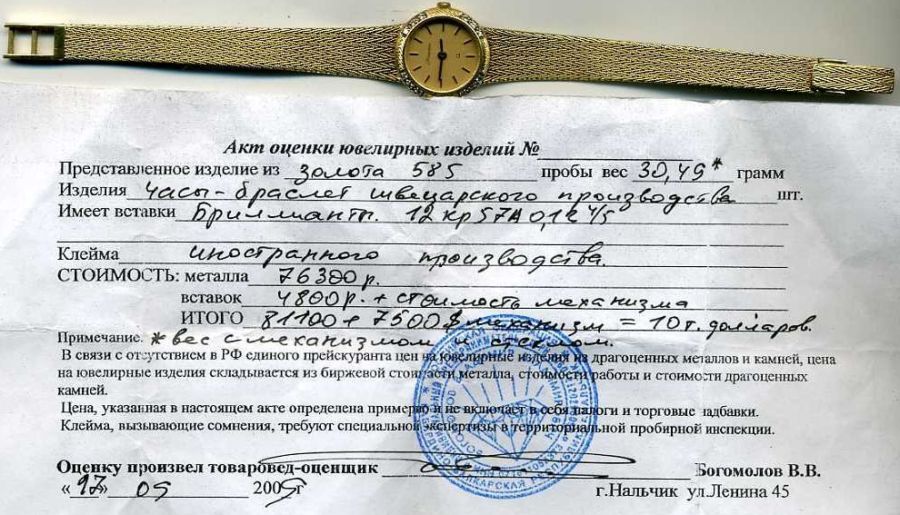 Акт оценки ювелирных изделий №
Представленное изделие из золота 585 пробы вес 30,49* грамм
Изделия часы-браслет швецарского производства шт.
Имеет вставки Бриллианты. 12 кр57А 0,12 4/5
Клейма иностранного производства.
СТОИМОСТЬ: металла 76300 р.
вставок 4800 р. + стоимость механизма
ИТОГО 81100 + 7500$ механизм = 10 т. долларов.
Примечание. * вес с механизмом и стеклом.
В связи с отсутствием в РФ единого прейскуранта цен на ювелирные изделия из драгоценных металлов и камней, цена
на ювелирные изделия складывается из биржевой стоимости металла, стоимости работы и стоимости драгоценных
камней.
Цена, указанная в настоящем акте определена примерно и не включает в себя налоги и торговые надбавки.
Клейма, вызывающие сомнения, требуют специальной экспертизы в территориальной пробирной инспекции.
Оценку произвел товаровед-оценщик Богомолов В.В.
«17» 09 2005г г.Нальчик ул.Ленина 45